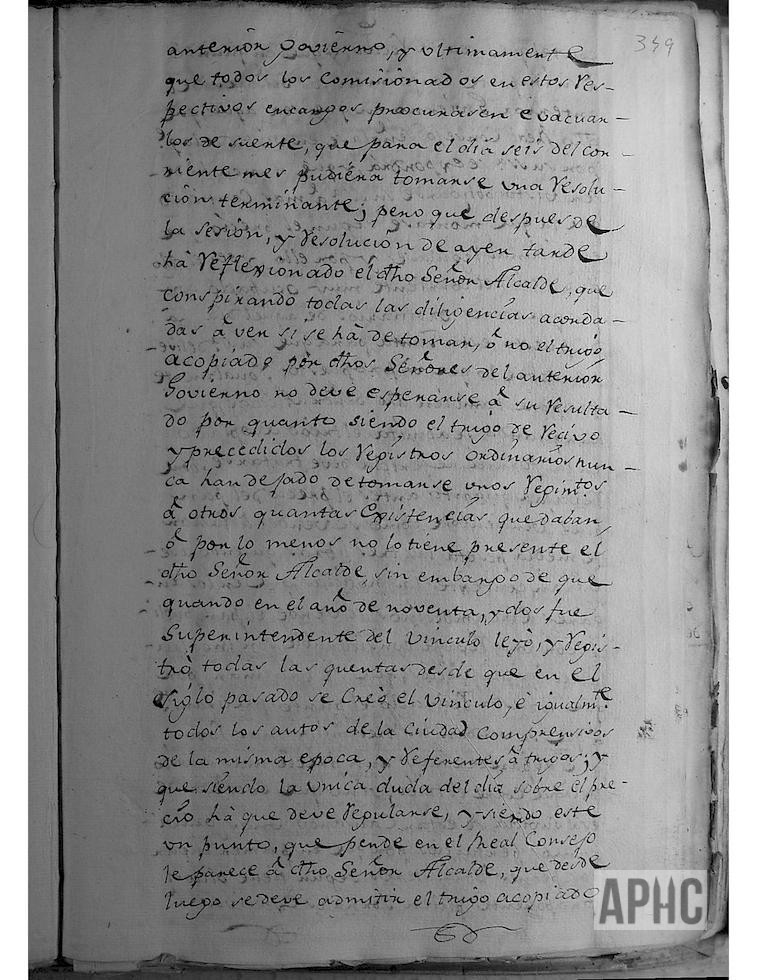 349
anterior Govierno, y ultimamente
que todos los Comisionados en estos Res-
pectivos encargos procurasen evacuar-
los de suerte, que para el dia seis del cor-
riente mes pudiera tomarse una Resolu-
cion terminante; pero que despues de
la sesion, y Resolución de ayer tarde
hà Reflexionado el dho Señor Alcalde, que
conspirando todas las diligencias acorda-
das à ver si se hà de tomar, ò no el trigo
acopiado por dhos Señores del anterior
Govierno no deve esperarse à su Resulta-
do por quanto siendo el trigo de Recivo
y precedidos los Registros ordinarios nun-
ca han dejado de tomarse unos Regimtos
à otros quantas Existencias quedaban,
ò por lo menos no lo tiene presente el
dho Señor Alcalde, sin embargo de que
quando en el año de noventa, y dos fue
Superintendente del Vinculo leyò, y Regis-
trò todas las quentas desde que en el
siglo pasado se Creò el Vinculo, è igualmte
todos los autos de la Ciudad Comprensivos
de la misma epoca, y Referentes à trigos; y
que siendo la Unica duda del dia sobre el pre-
cio hà que deve Regularse, y siendo este
un punto, que pende en el Real Consejo
le parece à dho Señor Alcalde, que desde
luego se deve admitir el trigo acopiado
APHC